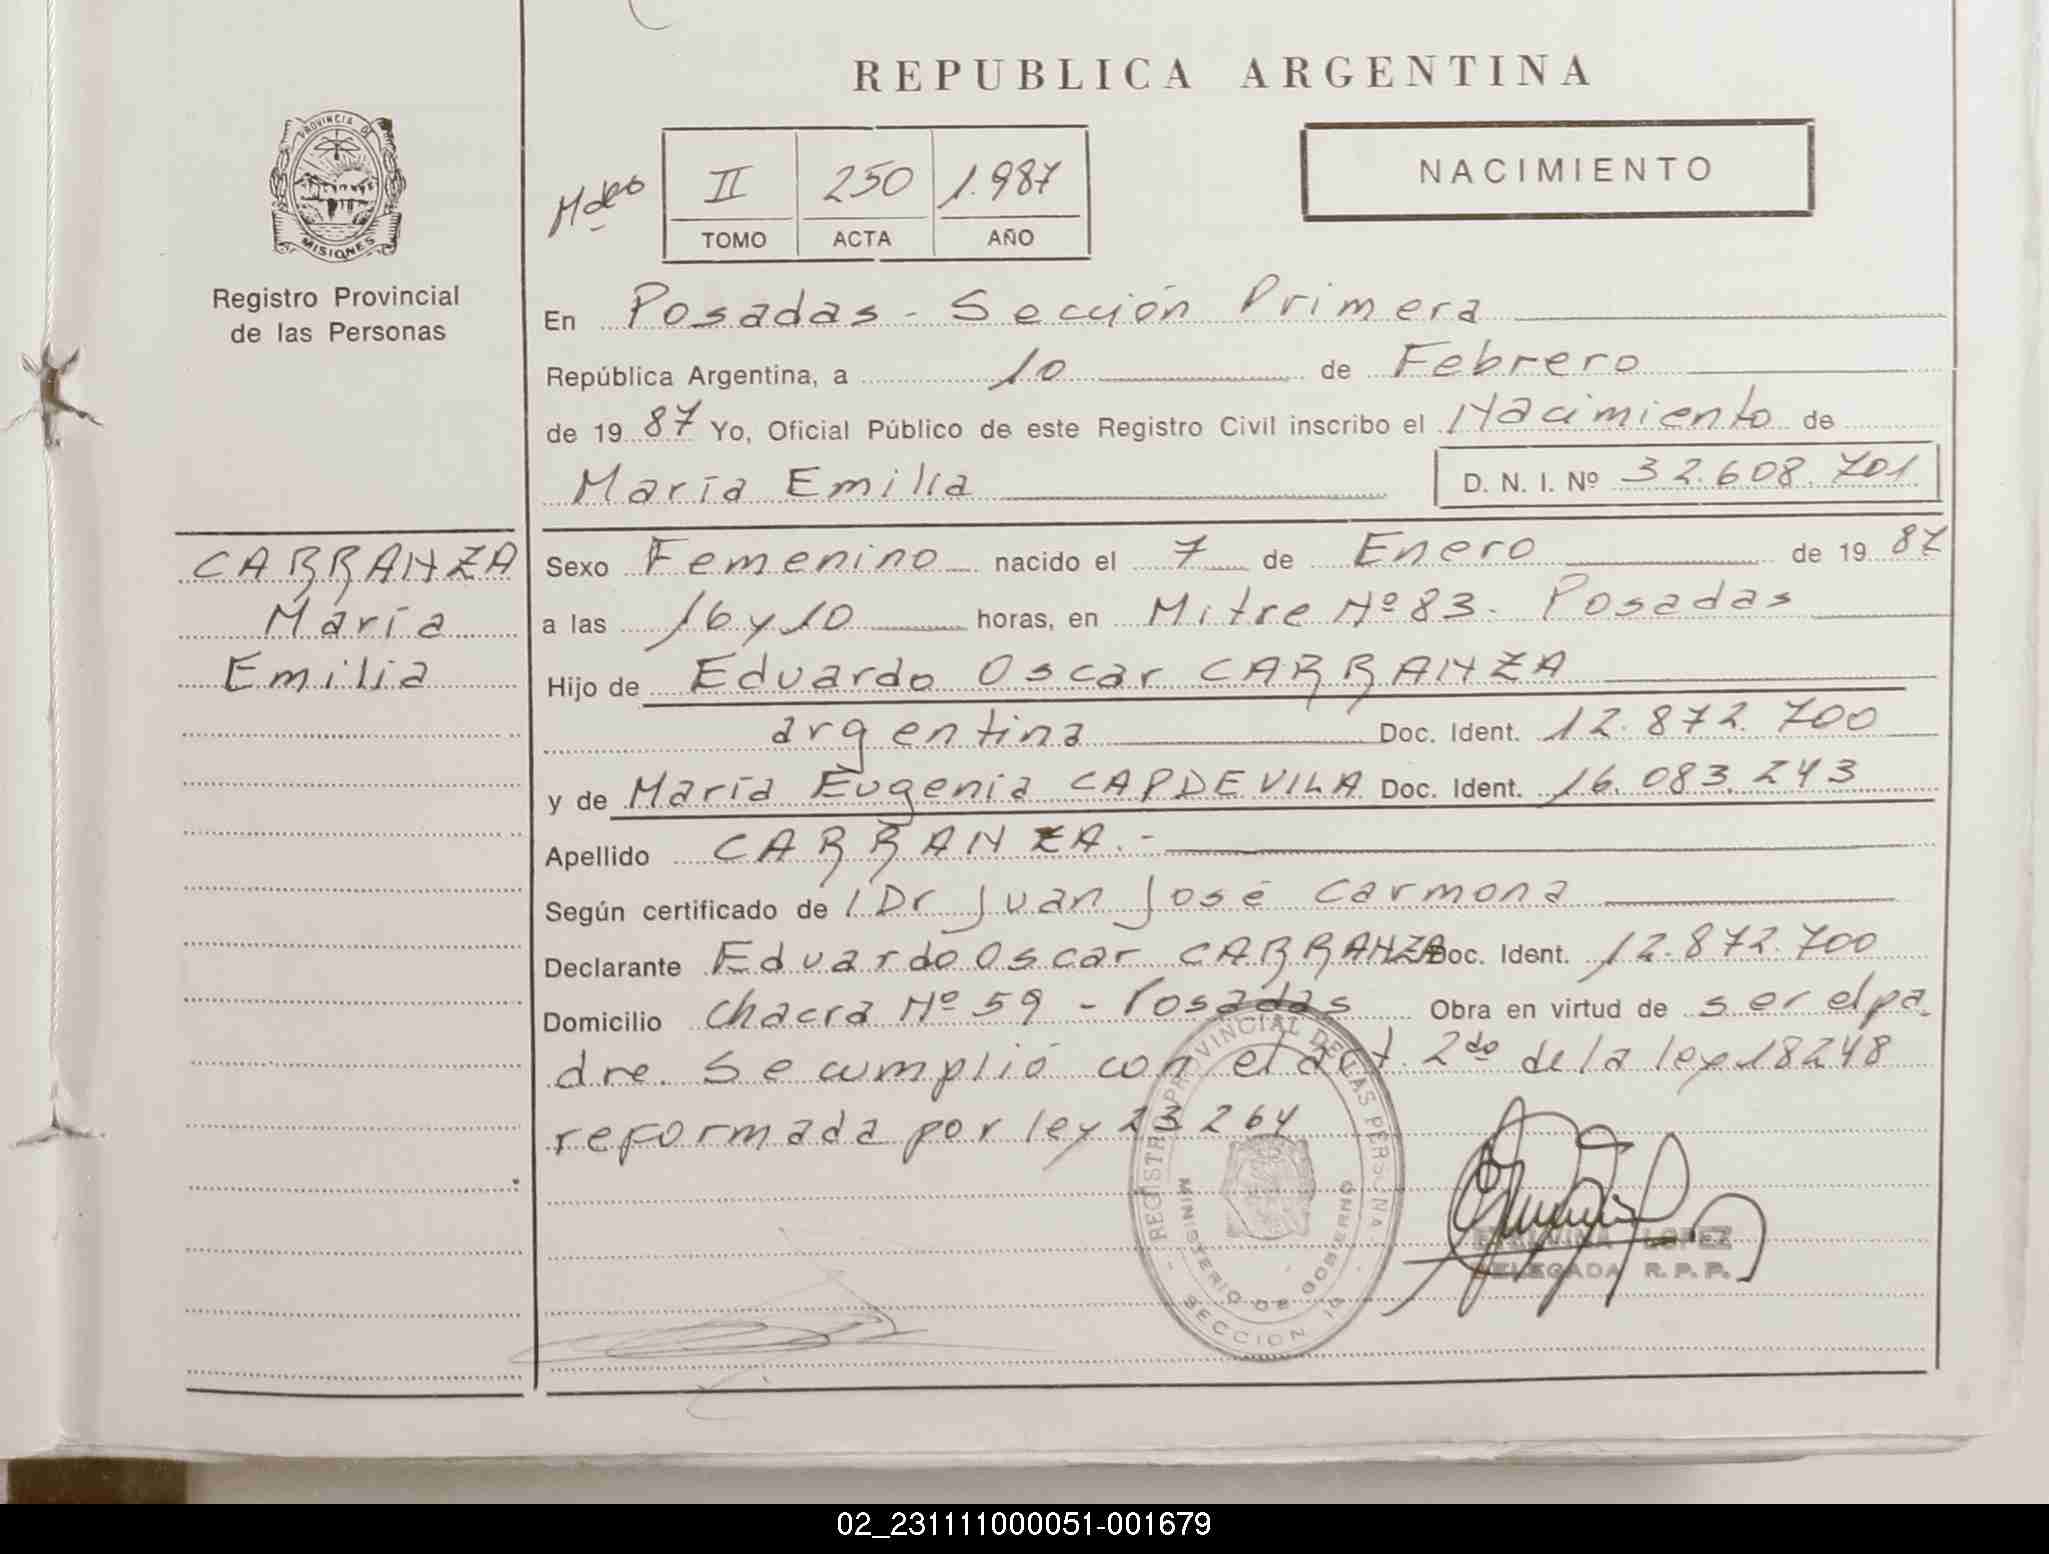 REPUBLICA ARGENTINA
PROVINCIA DE
MISIONES
Registro Provincial
de las Personas
II 250 1.987
TOMO ACTA AÑO
NACIMIENTO
En Posadas - Sección Primera
República Argentina, a 10 de Febrero
de 1987 Yo, Oficial Público de este Registro Civil inscribo el Nacimiento de
María Emilia D. N. I. Nº 32.608.701
CARRANZA
María
Emilia
Sexo Femenino nacido el 7 de Enero de 1987
a las 16 y 10 horas, en Mitre Nº 83. Posadas
Hijo de Eduardo Oscar CARRANZA
argentina Doc. Ident. 12.872.700
y de María Eugenia CAPDEVILA Doc. Ident. 16.083.243
Apellido CARRANZA.-
Según certificado de l Dr Juan José Carmona
Declarante Eduardo Oscar CARRANZA Doc. Ident. 12.872.700
Domicilio Chacra Nº 59 - Posadas Obra en virtud de ser el pa
dre. Se cumplió con el art. 2do de la ley 18248
reformada por ley 23264
REGISTRO PROVINCIAL DE LAS PERSONAS
MINISTERIO DE GOBIERNO
SECCION 1a
LOPEZ
DELEGADA R. P. P.
02_231111000051-001679